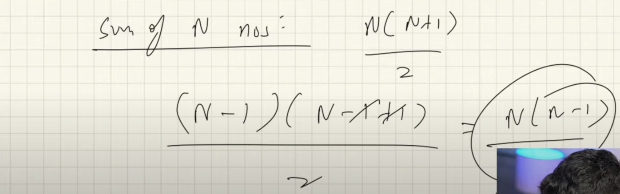 Sum of N nos: N(N+1)
2
(N-1)(N-1+1) = N(N-1)
2